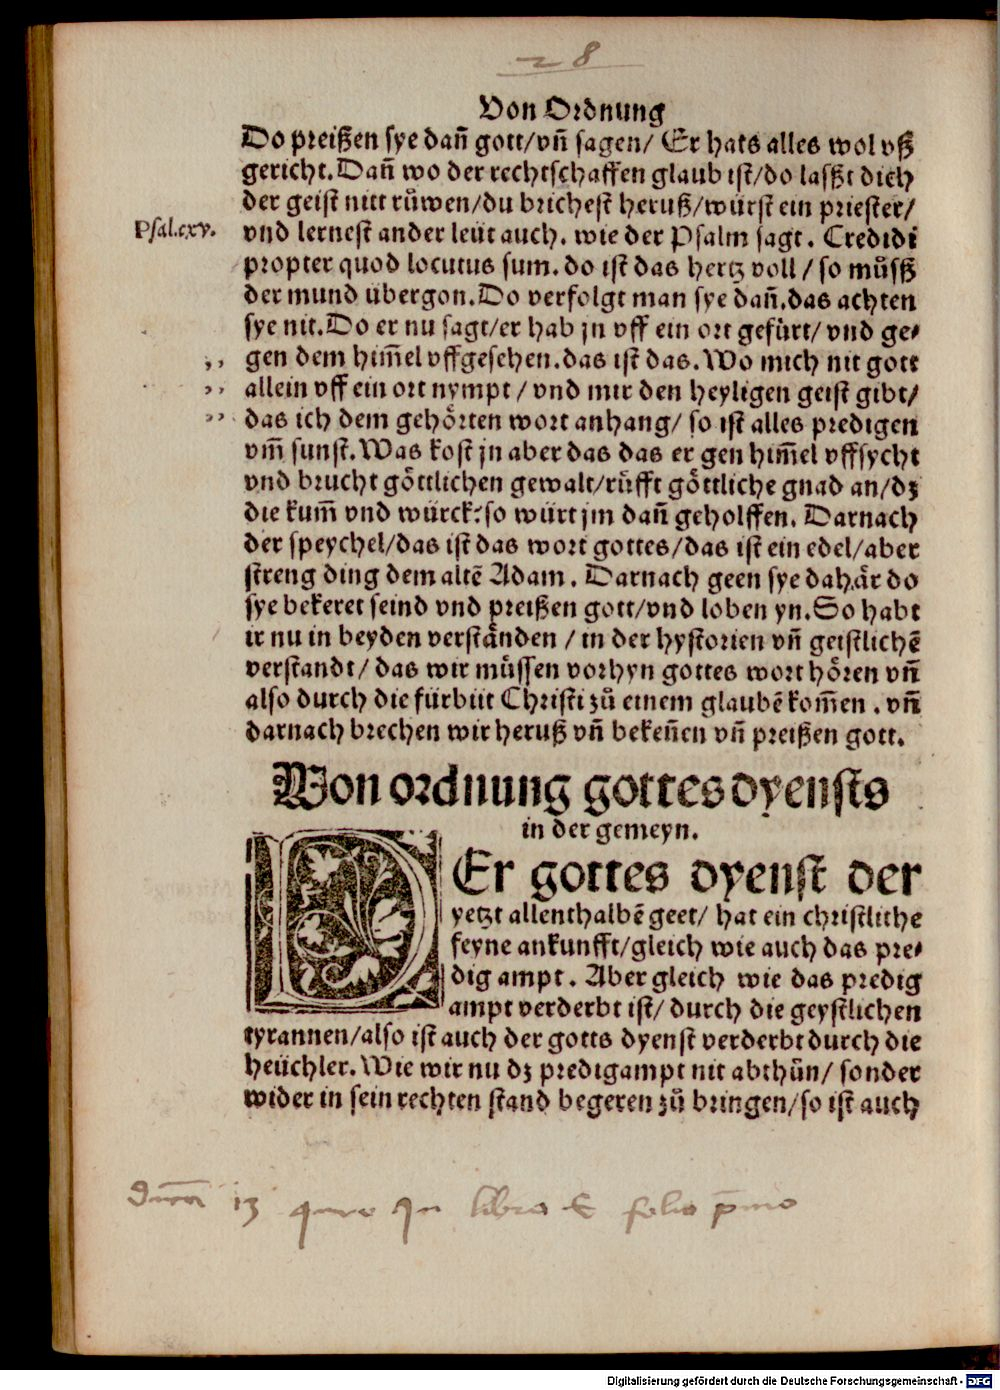 28
Von Ordnung
Do preißen sye dañ gott/vñ sagen/ Er hats alles wol vß
gericht. Dañ wo der rechtschaffen glaub ist/do laßt dich
der geist nitt růwen/du brichest heruß/würst ein priester/
Psal.cxv.
vnd lernest ander leüt auch. wie der Psalm sagt. Credidi
propter quod locutus sum. do ist das hertz voll/ so můß
der mund übergon. Do verfolgt man sye dañ. das achten
sye nit. Do er nu sagt/er hab jn vff ein ort gefürt/ vnd ge⸗
gen dem him̃el vffgesehen. das ist das. Wo mich nit gott
allein vff ein ort nympt/ vnd mir den heyligen geist gibt/
das ich dem gehörten wort anhang/ so ist alles predigen
vm̃ sunst. Was kost jn aber das das er gen him̃el vffsycht
vnd brucht göttlichen gewalt/růfft göttliche gnad an/dz
die kum̃ vnd würck: so würt jm dañ geholffen. Darnach
der speychel/das ist das wort gottes/das ist ein edel/aber
streng ding dem altē Adam. Darnach geen sye dahår do
sye bekeret seind vnd preißen gott/vnd loben yn. So habt
ir nu in beyden verständen/ in der hystorien vñ geistlichē
verstandt/ das wir müssen vorhyn gottes wort hören vñ
also durch die fürbitt Christi zů einem glaubē kom̃en. vñ
darnach brechen wir heruß vñ bekeñen vñ preißen gott.
Von ordnung gottes dyensts
in der gemeyn.
DEr gottes dyenst der
yetzt allenthalbē geet/ hat ein christliche
feyne ankunfft/gleich wie auch das pre⸗
dig ampt. Aber gleich wie das predig
ampt verderbt ist/ durch die geystlichen
tyrannen/also ist auch der gotts dyenst verderbt durch die
heüchler. Wie wir nu dz predigampt nit abthůn/ sonder
wider in sein rechten stand begeren zů bringen/so ist auch
13 in libro folio p̄mo
Digitalisierung gefördert durch die Deutsche Forschungsgemeinschaft - DFG